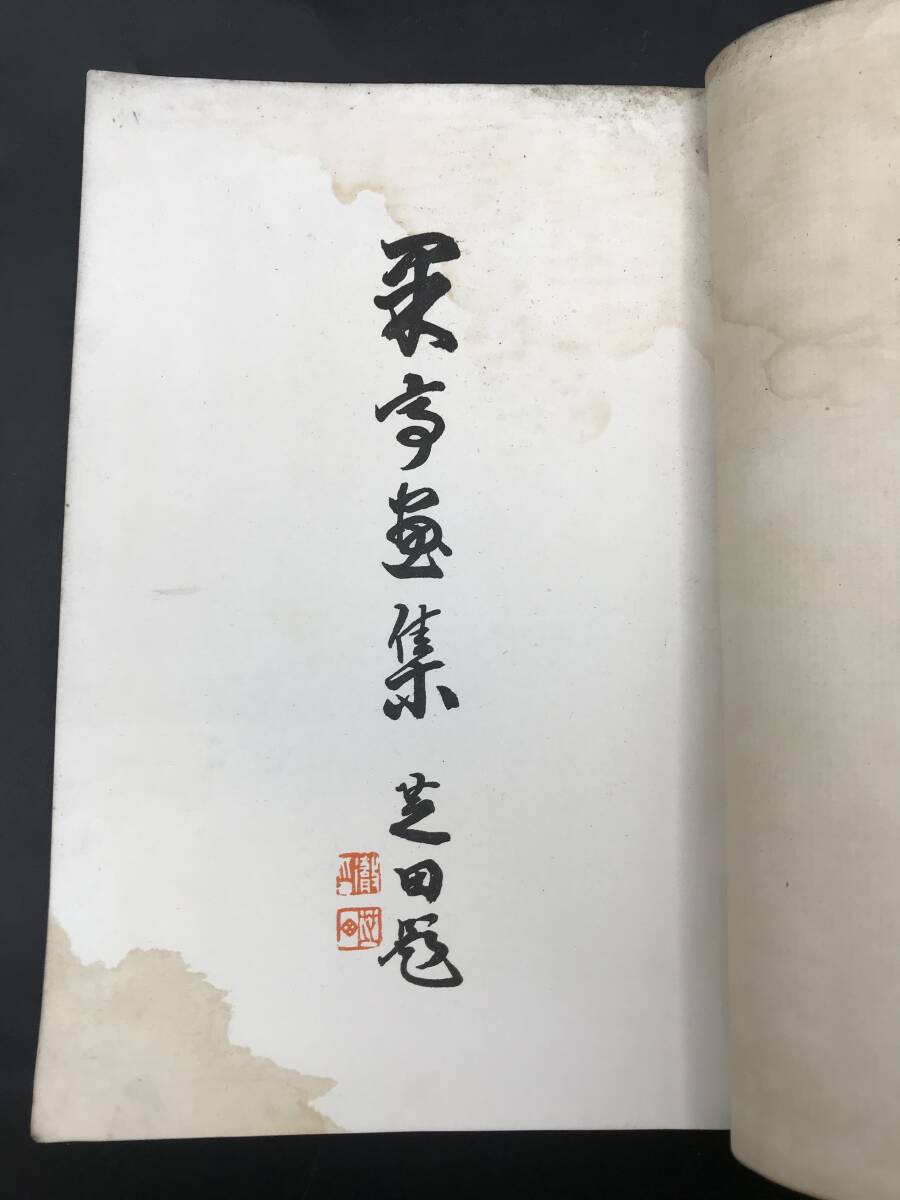 果亭畫集
芝田題